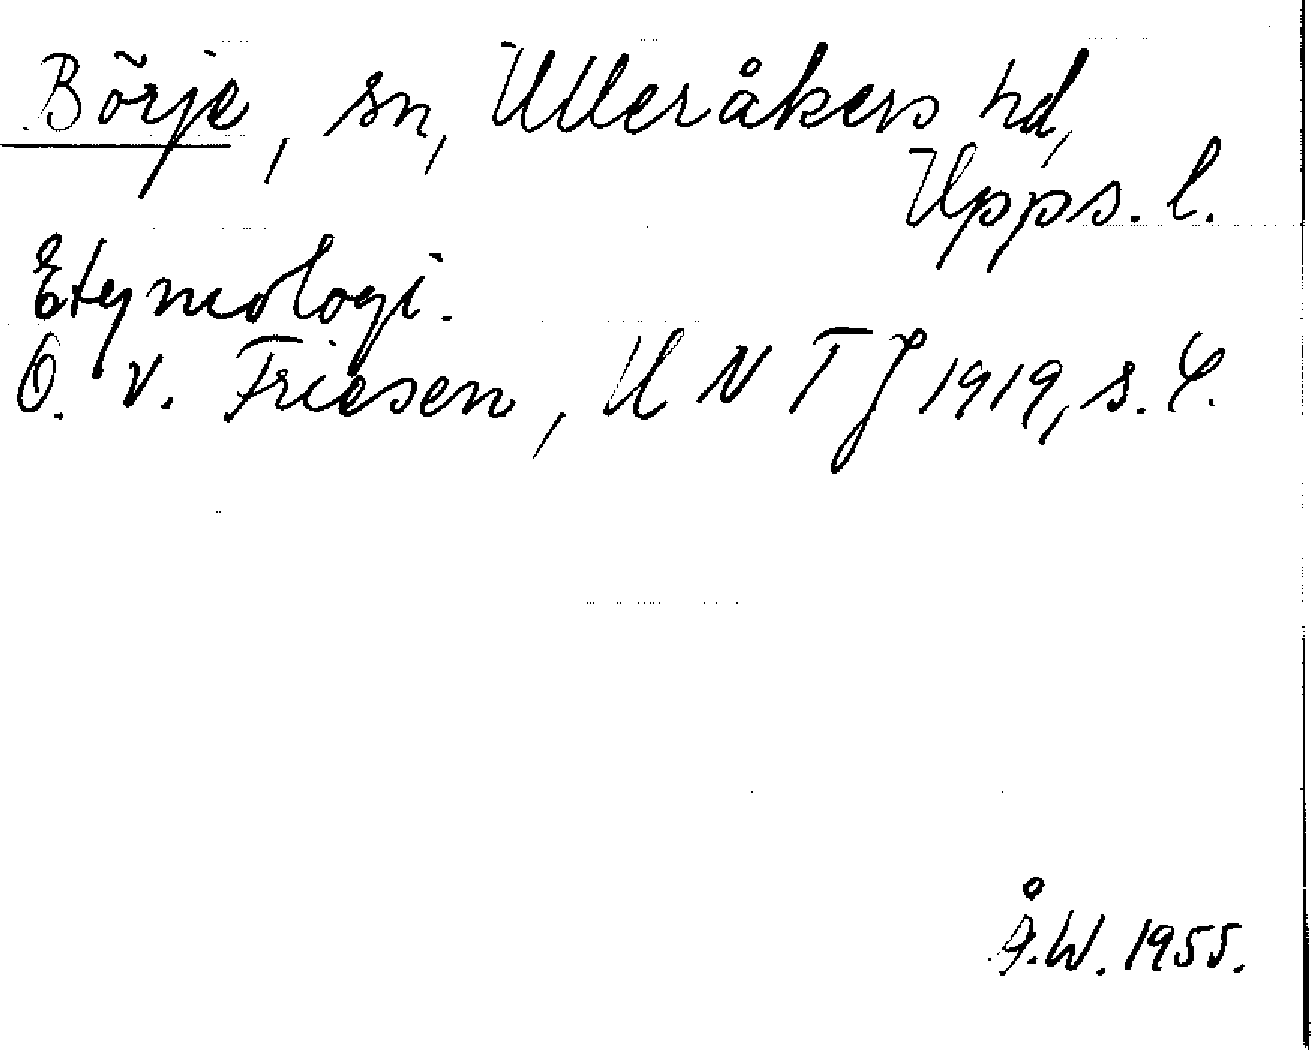 Börje, sn, Ulleråkers hd,
Upps. l.
Etymologi.
O. v. Friesen, UNTJ 1919, s. 4.
Å.W. 1955.